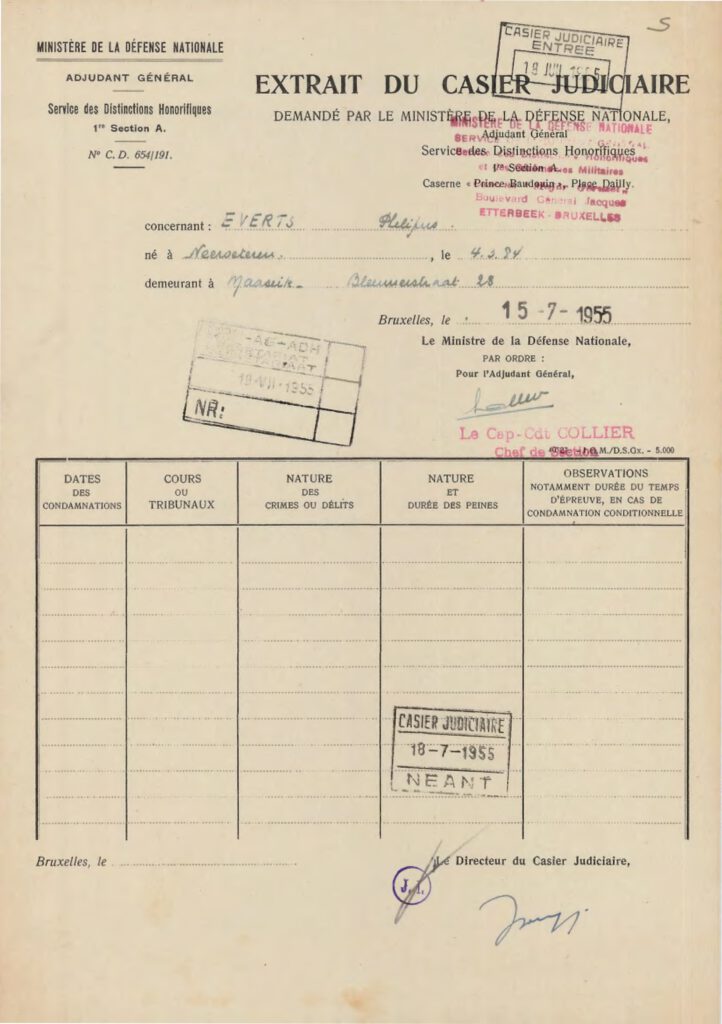 S
MINISTÈRE DE LA DÉFENSE NATIONALE
ADJUDANT GÉNÉRAL
Service des Distinctions Honorifiques
1re Section A.
N° C. D. 654/191.
CASIER JUDICIAIRE
ENTREE
18 JUIL 1955
EXTRAIT DU CASIER JUDICIAIRE
DEMANDÉ PAR LE MINISTÈRE DE LA DÉFENSE NATIONALE,
MINISTÈRE DE LA DÉFENSE NATIONALE
Adjudant Général
Service des Distinctions Honorifiques
Honorifiques
1re Section A.
Militaires
Caserne « Prince Baudouin », Place Dailly.
Boulevard Général Jacques
ETTERBEEK - BRUXELLES
concernant : EVERTS Philipus.
né à Neeroeteren. , le 4.3.84
demeurant à Maaseik - Bleumerstraat 28
Bruxelles, le 15-7-1955
Le Ministre de la Défense Nationale,
PAR ORDRE :
Pour l'Adjudant Général,
-AG-ADH
-VII-1955
NR:
Le Cap-Cdt COLLIER
Chef de Section
I.O.M./D.S.Gx. - 5.000
DATES DES CONDAMNATIONS
COURS OU TRIBUNAUX
NATURE DES CRIMES OU DÉLITS
NATURE ET DURÉE DES PEINES
OBSERVATIONS NOTAMMENT DURÉE DU TEMPS D'ÉPREUVE, EN CAS DE CONDAMNATION CONDITIONNELLE
CASIER JUDICIAIRE
18-7-1955
NEANT
Bruxelles, le
Le Directeur du Casier Judiciaire,
J.I.